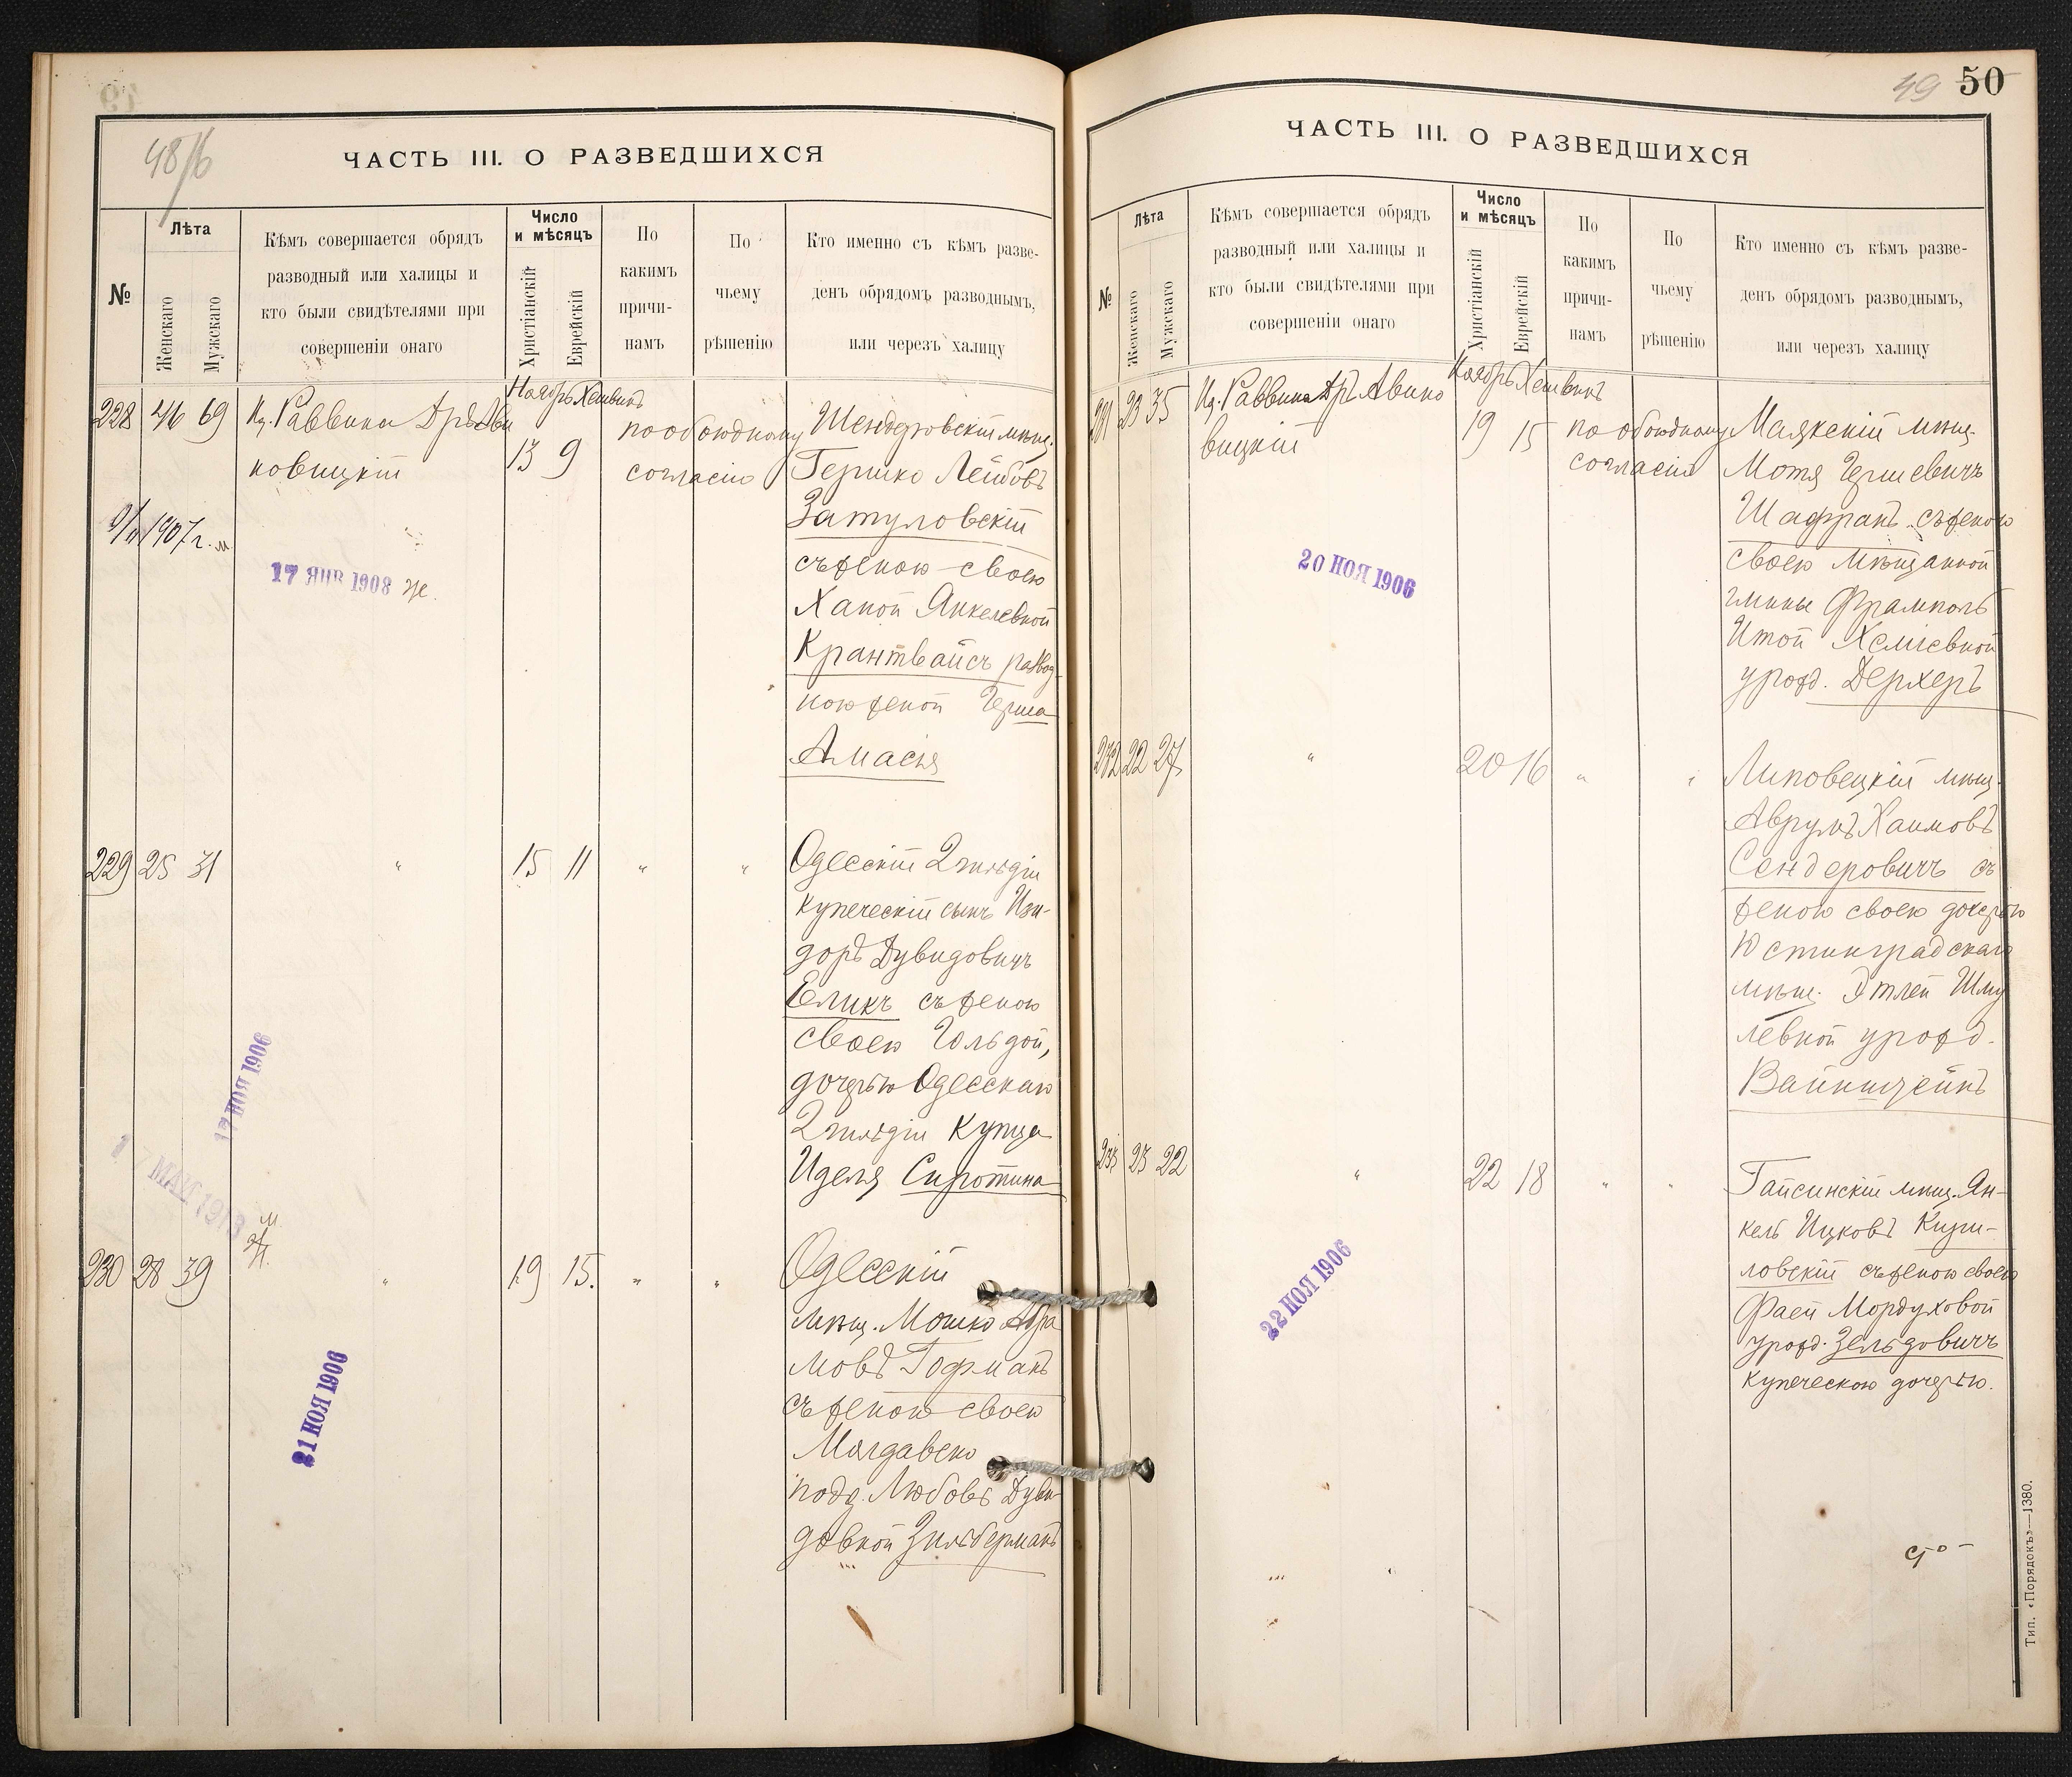 48/б
ЧАСТЬ III. О РАЗВЕДШИХСЯ
№
Лѣта
Женскаго
Мужскаго
Кѣмъ совершается обрядъ
разводный или халицы и
кто были свидѣтелями при
совершеніи онаго
Число
и мѣсяцъ
Христіанскій
Еврейскій
По
какимъ
причи-
намъ
По
чьему
рѣшенію
Кто именно съ кѣмъ разве-
денъ обрядомъ разводнымъ,
или черезъ халицу
228 46 69
Раввина Дръ Ави
новицкій
Ноябрь Хешванъ
13 9
по обоюдному
согласію
Шендеровскій мѣщ.
Гершко Лейбовъ
Затуловскій
съ женою своею
Ханой Янкелевной
Крантвайсъ развод
ною женой Герша
Амасія
1907 г. м
17 ЯНВ 1908 ж.
229 25 31
" 15 11 " "
Одесскій 2 гильдіи
купеческій сынъ Изи-
доръ Дувидовичъ
Еликъ съ женою
своею Гольдой,
дочерью Одесскаго
2 гильдіи купца
Иделя Сиротина
17 НОЯ 1906
17 МАЯ 1913
м
ж.
230 28 39
" 19 15. " "
Одесскій
мѣщ. Мошко Абра
мовъ Гофманъ
съ женою своею
Молдавско
подд. Любовь Дуви
довной Зильберманъ
21 НОЯ 1906
49 50
ЧАСТЬ III. О РАЗВЕДШИХСЯ
№
Лѣта
Женскаго
Мужскаго
Кѣмъ совершается обрядъ
разводный или халицы и
кто были свидѣтелями при
совершеніи онаго
Число
и мѣсяцъ
Христіанскій
Еврейскій
По
какимъ
причи-
намъ
По
чьему
рѣшенію
Кто именно съ кѣмъ разве-
денъ обрядомъ разводнымъ,
или черезъ халицу
231 23 35
Раввина Дръ Авино
вицкій
Ноябрь Хешванъ
19 15
по обоюдному
согласію
Маякскій мѣщ.
Мотя Гершевичъ
Шафранъ съ женою
своею мѣщанкой
гмины Фрамполь
Итой Хемiевной
урожд. Дерхеръ
20 НОЯ 1906
232 22 27
" 20 16 " "
Липовецкій мѣщ.
Аврумъ Хаимовъ
Сендеровичъ съ
женою своею дочерью
Юстинградскаго
мѣщ. Этлей Шму
левной урожд.
Вайнштейнъ
233 23 22
" 22 18 " "
Гайсинскій мѣщ. Ян-
кель Ицковъ Кири-
ловскій съ женою своею
Фаей Мордуховой
урожд. Зельдовичъ
купеческою дочерью.
22 НОЯ 1906
Тип. «Порядокъ»—1380.